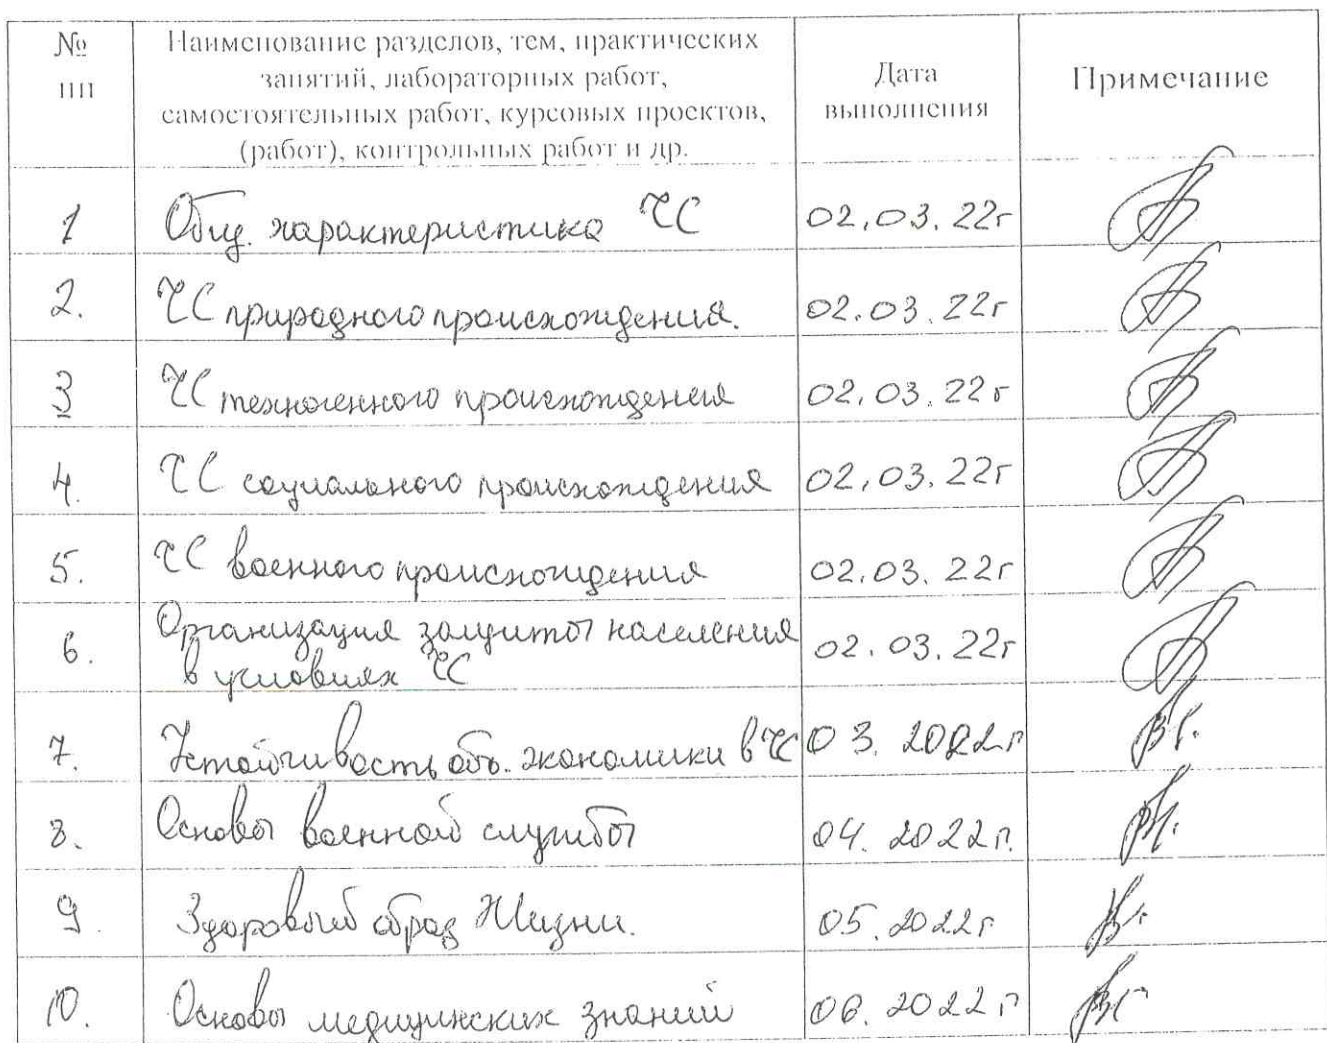 № пп
Наименование разделов, тем, практических
занятий, лабораторных работ,
самостоятельных работ, курсовых проектов,
(работ), контрольных работ и др.
Дата
выполнения
Примечание
1 Общ. характеристика ЧС 02.03.22г
2. ЧС природного происхождения. 02.03.22г
3 ЧС техногенного происхождения 02.03.22г
4. ЧС социального происхождения 02.03.22г
5. ЧС военного происхождения 02.03.22г
6. Организация защиты населения 02.03.22г
в условиях ЧС
7. Устойчивость объ. экономики в ЧС 03.2022г
8. Основы военной службы 04.2022г.
9. Здоровый образ Жизни. 05.2022г
10. Основы медицинских знаний 06.2022г